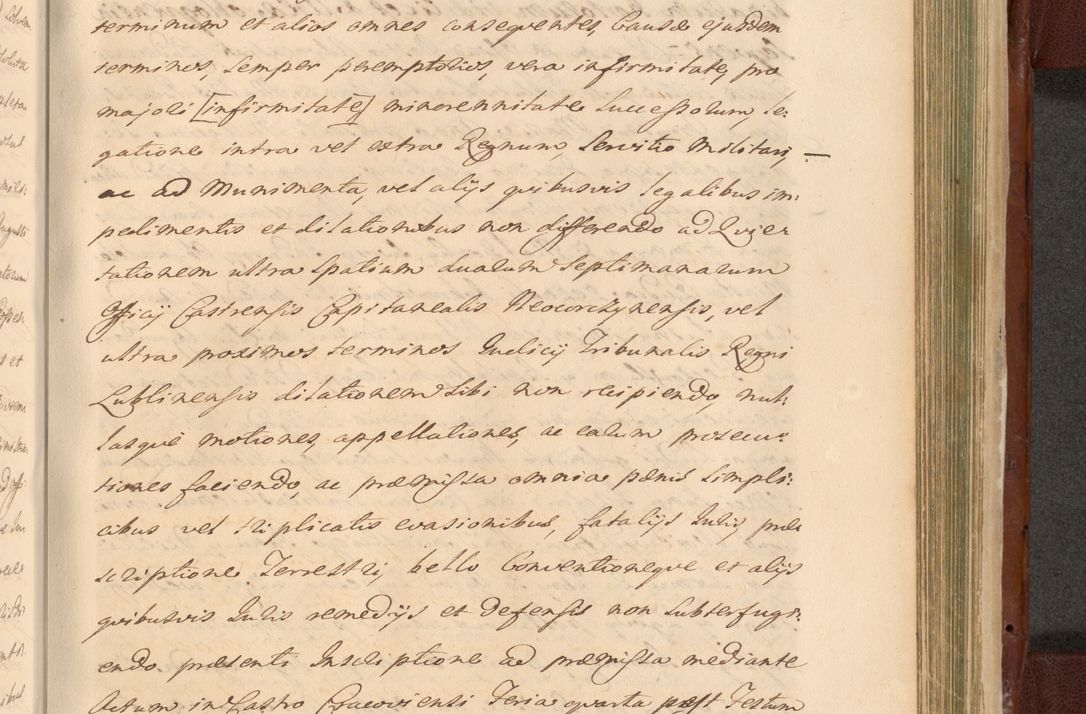 terminum et alios omnes conseqventes, Causæ ejusdem
terminos, semper peremptorios, vera infirmitate, pro
majori [infirmitate] minorennitate Successorum, le:
gatione intra vel extra Regnum, Servitio Militari, —
ac ad Munimenta, vel alijs qvibusvis legalibus im:
pedimentis et dilationibus non differendo ad Qvier
tationem ultra spatium duarum Septimanarum
Officij Castrensis Capitanealis Neocorczynensis, vel
ultra proximos terminos Iudicij Tribunalis Regni
Lublinensis dilationem sibi non recipiendo, nul:
lasqve motiones, appellationes, ac earum prosecu:
tiones faciendo, ac præmissa omnia pænis simpli:
cibus vel triplicatis evasionibus, fatalijs Iuris, præ
scriptione Terrestri, bello Conventioneqve et alijs
qvibusvis Iuris remedijs et defensis non subterfugi:
endo præsenti Inscriptione ad præmissa mediante
Actum in Castro Cracoviensi Feria qvarta post Festum